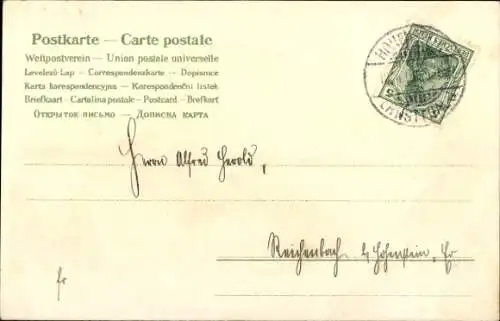 Postkarte — Carte postale
Weltpostverein — Union postale universelle
Levelező-Lap — Correspondenzkarte — Dopisnice
Karta korespondencyjna — Korespondenční lístek
Briefkaart — Cartolina postale — Postcard — Brefkort
Открытое письмо — Дописна карта
Herrn Alfred Herold,
Reichenbach b/ Hohenstein, Er
fr